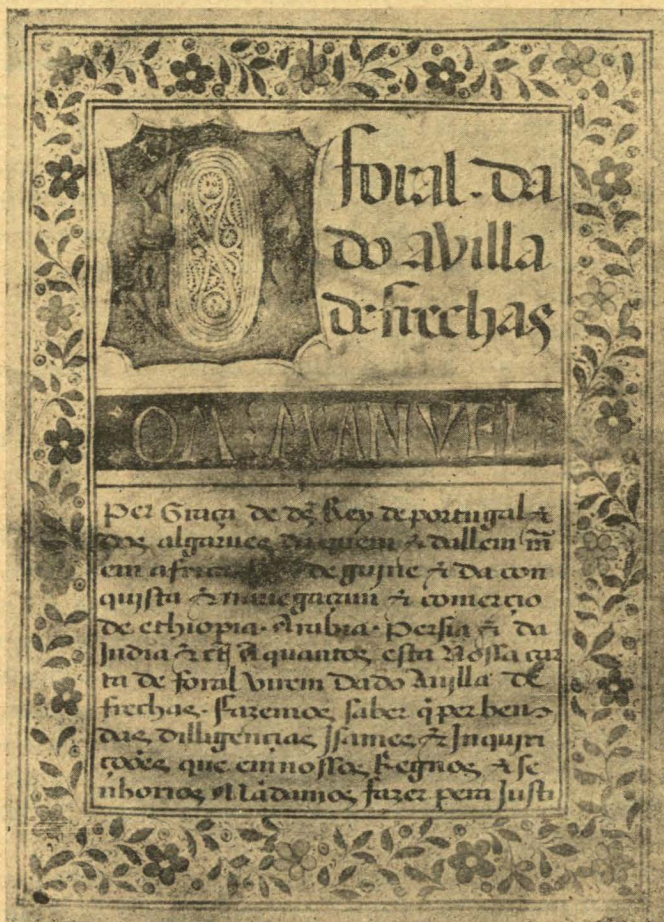 foral . da
do a villa
de frechas
D
OM : MANVEL
per Graça de ds Rey de portugal &
dos algarues daquem & dallem m̃
em africa de guine & da con
quista & nauegaçam & comerçio
de ethiopia . Arabia . persia & da
India & A quantos esta Nossa car
ta de foral virem dado a villa de
frechas . fazemos saber q̃ per bem
das dilligençias Isames & Inquiri
çoões que em nossos Regnos & se
nhorios Mãdamos fazer pera Justi